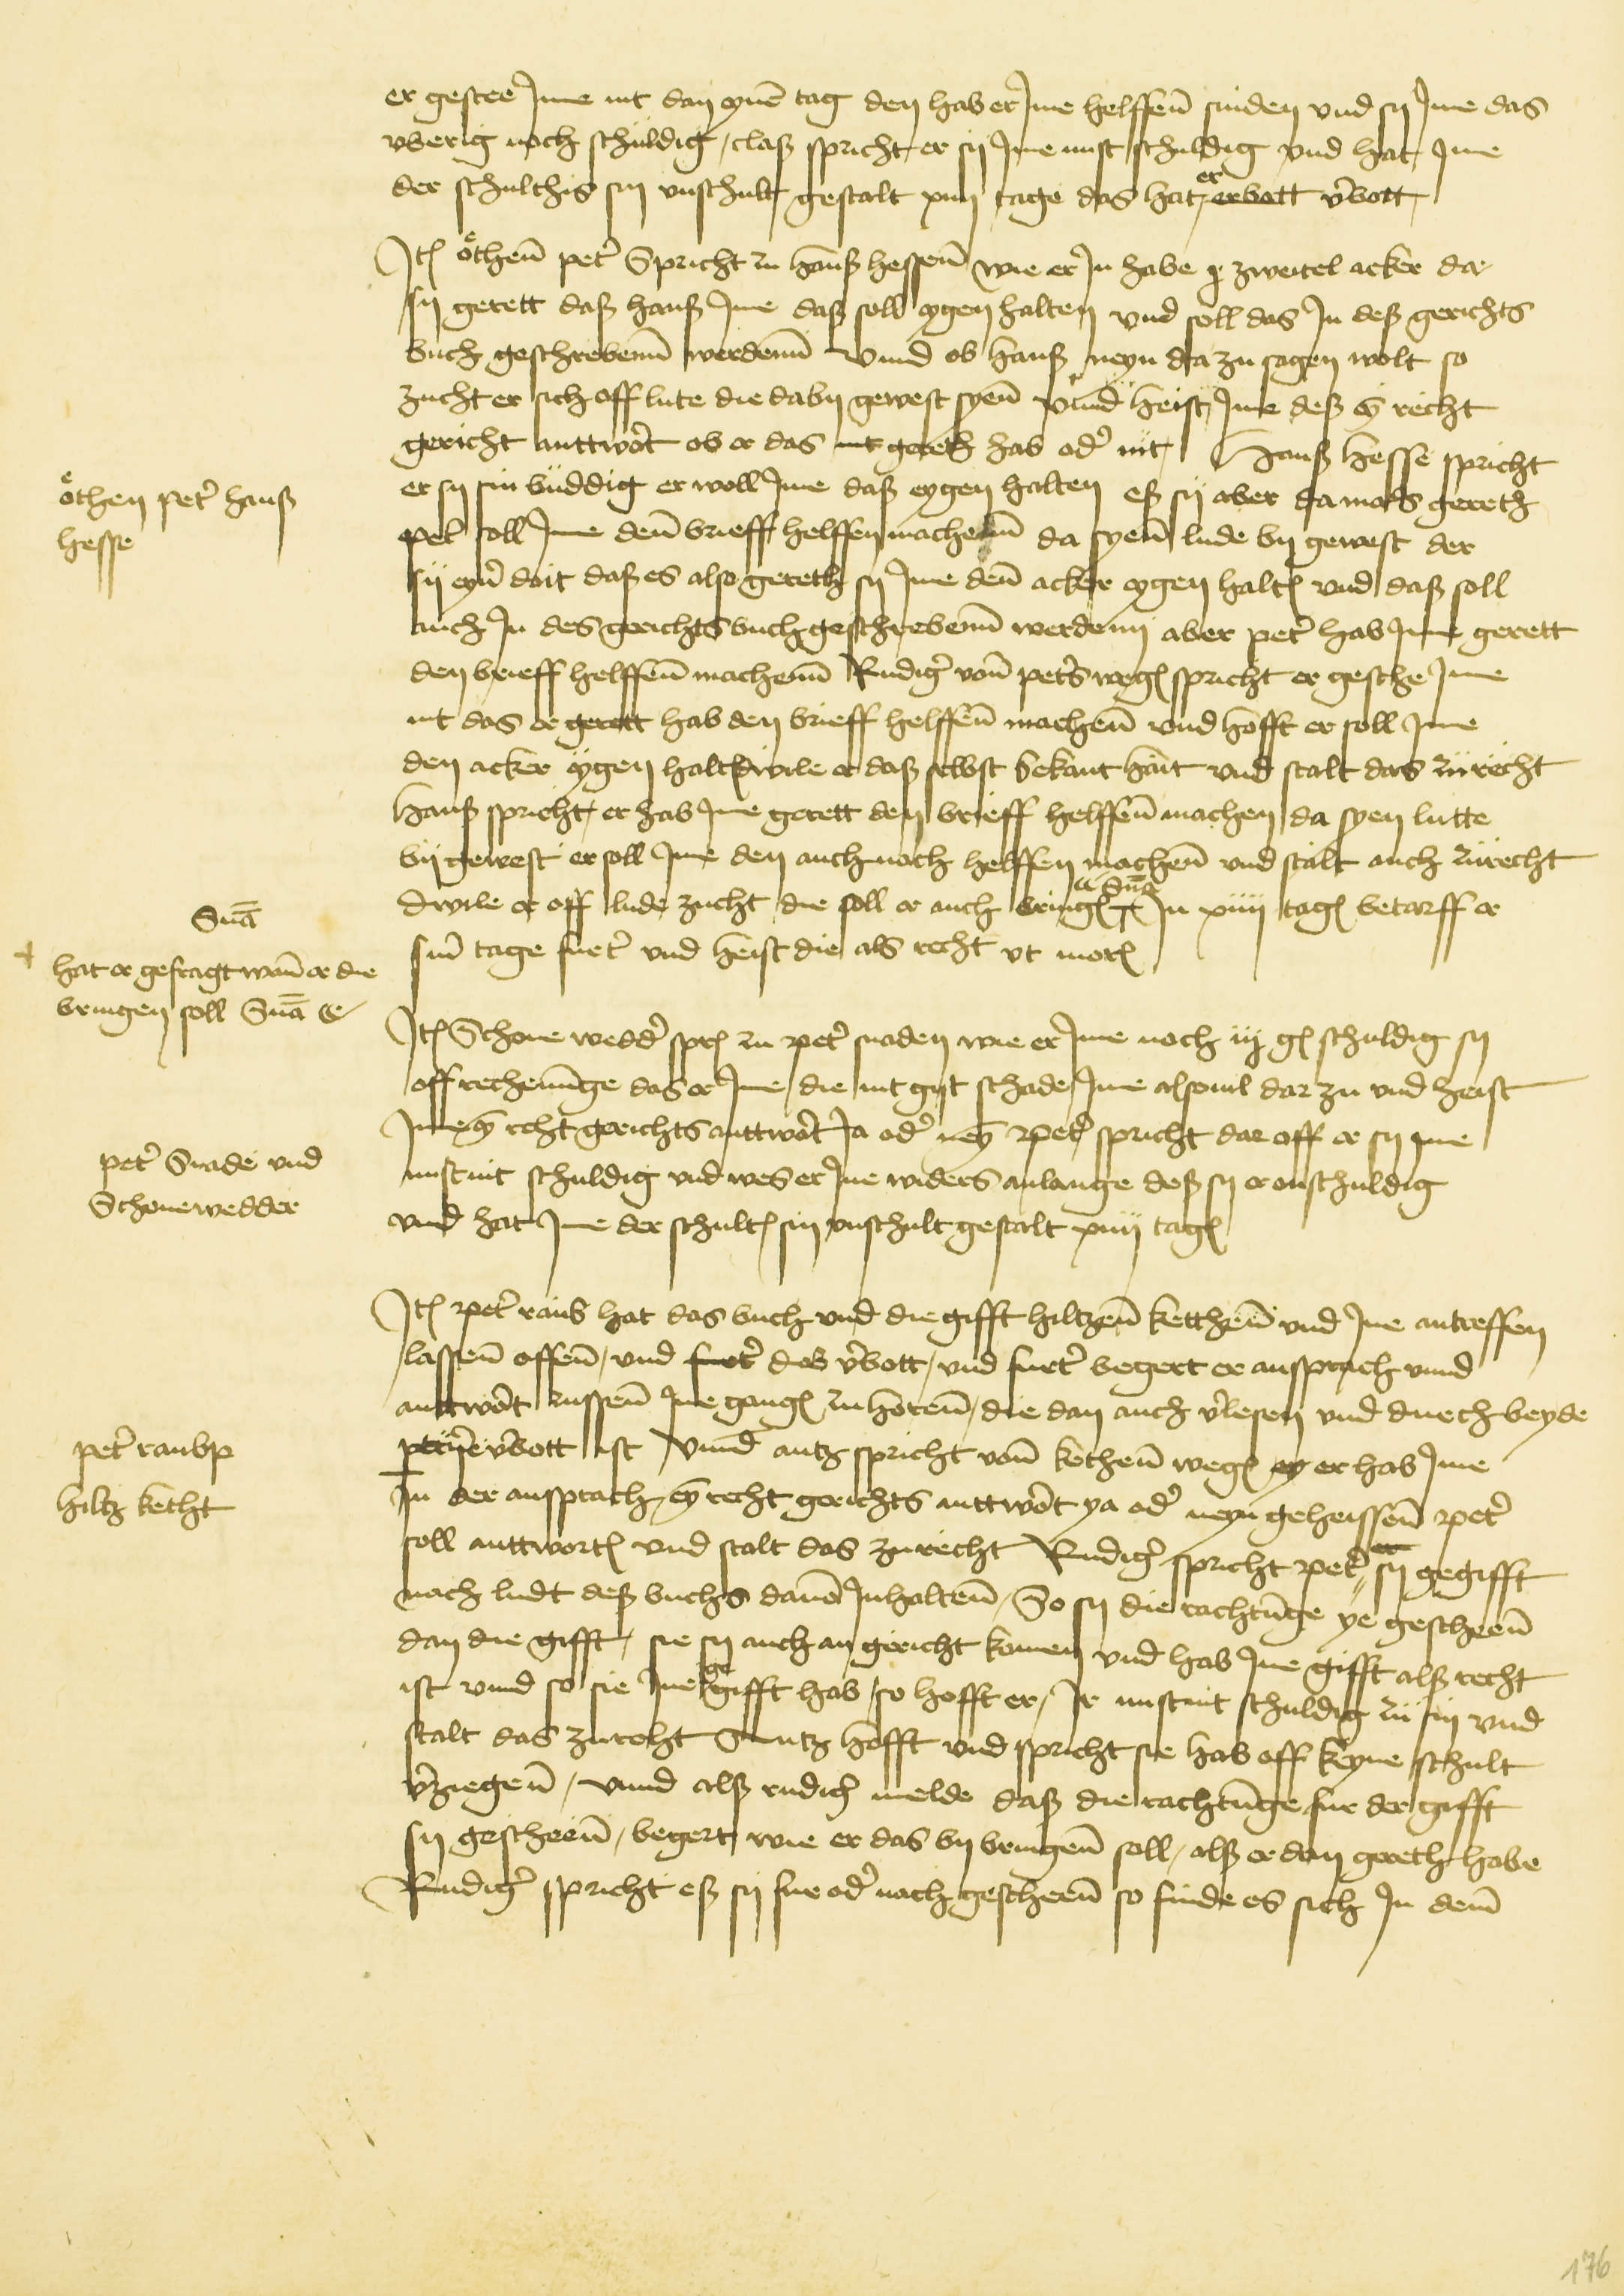 er gestee Ime nit dan eynē tag den hab er Ime helffen̄ sniden vnd sy Ime das
vberig noch schuldig, claß spricht er sij Ime nust schuldig vnd hat Ime
der schulthis sin vnschult gestalt xiiij tage das hat er erbott v̄bott
Itē öthen̄ pet̄ Spricht zu hanß hessen̄ wie er Jn habe j zweitel acker da
sy gerett daß hanß Ime daß soll eygen halten vnd soll das Jn deß gerichts
buch geschreben̄ werden̄ Vnnd ob hanß neyn dazu sagen wolt so
zucht er sich off lute die daby gewest syen̄ vnnd heist Ime deß eȳ recht
gericht anttwort ob er das nit gereth hab od̄ nit Hanß hesse spricht
er sy sin buddig er woll Ime daß eygen halten eß sy aber damals gereth
öthen pet̄ hanß
hesse
pet̄ soll Ime den̄ brieff helffen machen̄ da syen̄ lude by gewest der
sij eyn̄ doit daß es also gereth sy Ime den̄ acker eygen haltē vnd daß soll
auch Jn des gerichts buch geschreben̄ werden̄ aber pet̄ hab Ime gerett
den brieff helffen̄ machen̄ Rudiḡ von̄ pet̄s wegē spricht er gestehe Ime
nit das er gerett hab den brieff helffen̄ machen̄ vnd hofft er soll Ime
den acker eygen haltē diwile er daß selbst bekant hait vnd stalt das zurecht
Hanß spricht er hab Ime gerett den brieff helffen̄ machen da syen lutte
bij gewest er soll Ime den auch noch helffen machen̄ vnd stalt auch zurecht
Snā
Diwile er off lude zucht die soll er auch bringē Jn xiiij tagē betarff er
sin̄ tage furt̄ vnd heist die als recht vt morē
Snā
hat er gefragt wan̄ er die
bringen soll Snā
Itē Schonewedd̄ sprē zu pet̄ snaden wie er Ime noch iij gē schuldig sy
off rechenūnge das er Ime die nit gijt schade Ime alsouil dar zu vnd heist
Ime eȳ reht gerichts anttwort Ja od̄ neȳ Pet̄ spricht dar off er sy Ime
nust nit schuldig vnd wes er Ine widers anlange deß sy er onschuldig
vnd hat Ime der schultē sin vnschult gestalt xiiij tagē
pet̄ Snade vnd
Schonewedder
Itē Pet̄ raub hat das buch vnd die gifft hiltzen̄ ketthen̄ vnd Ine antreffen
lassen̄ offen̄, vnd furt̄ das v̄bott, vnd furt̄ begert er ansprach vnnd
anttwort zussen̄ Ine gangē zu horen̄, die dan auch v̄lesen vnd durch beyde
v̄bott ist Vnnd antz spricht von̄ kethen̄ wegē er hab Ime
Jn der ansprach eȳ recht gerichts anttwort ya od̄ neyn geheissen̄ Pet̄
soll anttwortē vnd stalt das zurecht Rudiḡ spricht Pet̄ sy gegifft
nach ludt deß buchs dauon Jnhalten̄, So sy die rachtūnge ye gescheen̄
dan die gifft, sie sy auch an gericht komen vnd hab Ine gifft alß recht
ist vnnd so sie Ine gegifft hab, so hofft er, Ir nust nit schuldig zu sin vnd
stalt das zurecht Antz hofft vnd spricht sie hab off keyne schult
v̄ziegen̄, vnnd alß rudiḡ melde daß die rachtūnge fur der gifft
sy gescheen̄, begert wie er das by bringen̄ soll, alß er dan gereth habe
Rudiḡ spricht eß sy fur od̄ nach gescheen̄ so finde es sich Jn dem̄
pet̄ raubp
hiltz ketht
176